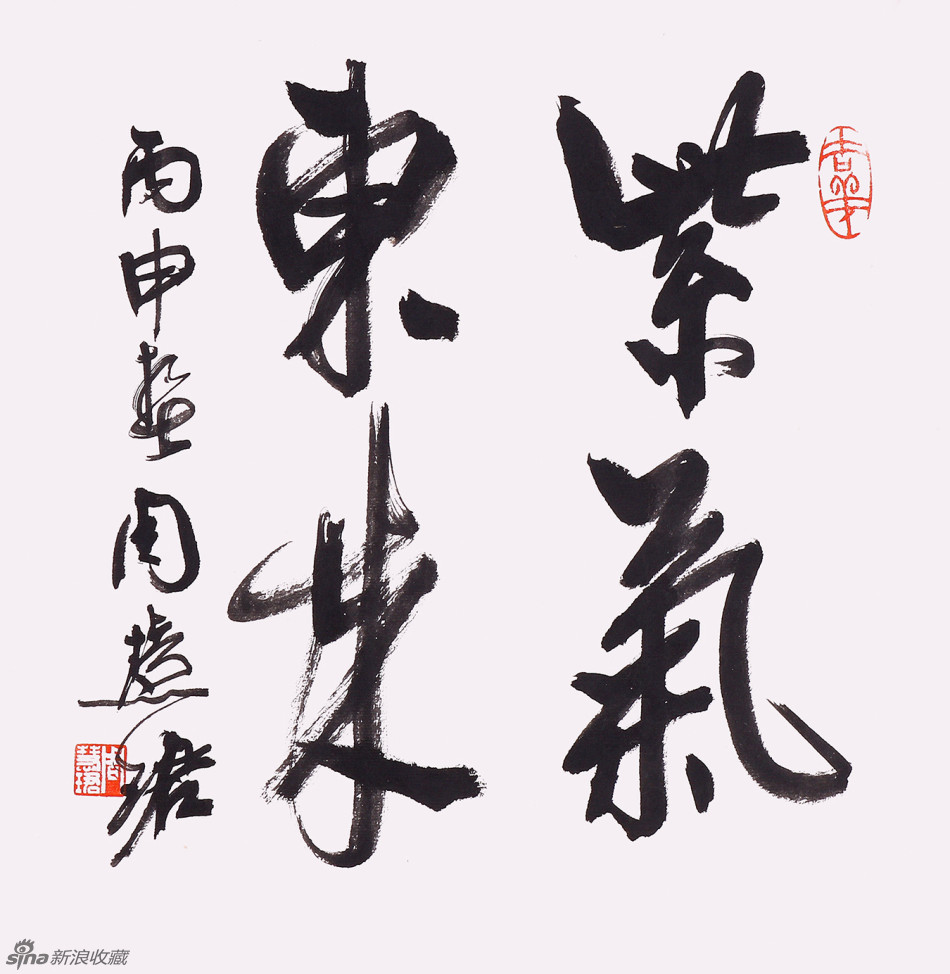 紫氣
東來
丙申春周慧珺
周慧珺
sina新浪收藏